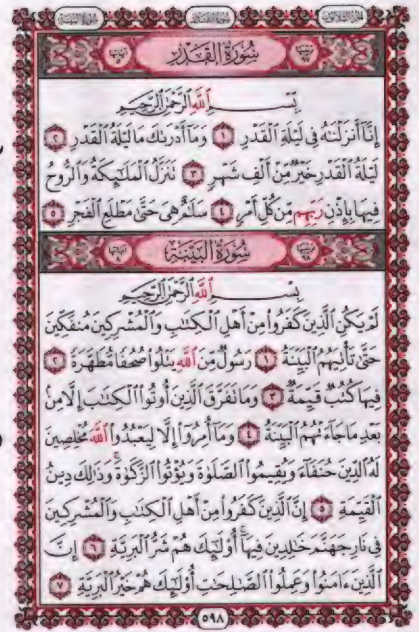 سُورَةُ القَدْرِ
بِسْمِ اللَّهِ الرَّحْمَٰنِ الرَّحِيمِ
إِنَّا أَنزَلْنَٰهُ فِي لَيْلَةِ الْقَدْرِ ١ وَمَا أَدْرَىٰكَ مَا لَيْلَةُ الْقَدْرِ ٢
لَيْلَةُ الْقَدْرِ خَيْرٌ مِّنْ أَلْفِ شَهْرٍ ٣ تَنَزَّلُ الْمَلَٰٓئِكَةُ وَالرُّوحُ
فِيهَا بِإِذْنِ رَبِّهِم مِّن كُلِّ أَمْرٍ ٤ سَلَٰمٌ هِيَ حَتَّىٰ مَطْلَعِ الْفَجْرِ ٥
سُورَةُ البَيِّنَةِ
بِسْمِ اللَّهِ الرَّحْمَٰنِ الرَّحِيمِ
لَمْ يَكُنِ الَّذِينَ كَفَرُوا مِنْ أَهْلِ الْكِتَٰبِ وَالْمُشْرِكِينَ مُنفَكِّينَ
حَتَّىٰ تَأْتِيَهُمُ الْبَيِّنَةُ ١ رَسُولٌ مِّنَ اللَّهِ يَتْلُوا صُحُفًا مُّطَهَّرَةً ٢
فِيهَا كُتُبٌ قَيِّمَةٌ ٣ وَمَا تَفَرَّقَ الَّذِينَ أُوتُوا الْكِتَٰبَ إِلَّا مِنۢ
بَعْدِ مَا جَآءَتْهُمُ الْبَيِّنَةُ ٤ وَمَآ أُمِرُوٓا إِلَّا لِيَعْبُدُوا اللَّهَ مُخْلِصِينَ
لَهُ الدِّينَ حُنَفَآءَ وَيُقِيمُوا الصَّلَوٰةَ وَيُؤْتُوا الزَّكَوٰةَ ۚ وَذَٰلِكَ دِينُ
الْقَيِّمَةِ ٥ إِنَّ الَّذِينَ كَفَرُوا مِنْ أَهْلِ الْكِتَٰبِ وَالْمُشْرِكِينَ
فِي نَارِ جَهَنَّمَ خَٰلِدِينَ فِيهَآ ۚ أُولَٰٓئِكَ هُمْ شَرُّ الْبَرِيَّةِ ٦ إِنَّ
الَّذِينَ ءَامَنُوا وَعَمِلُوا الصَّٰلِحَٰتِ أُولَٰٓئِكَ هُمْ خَيْرُ الْبَرِيَّةِ ٧
٥٩٨